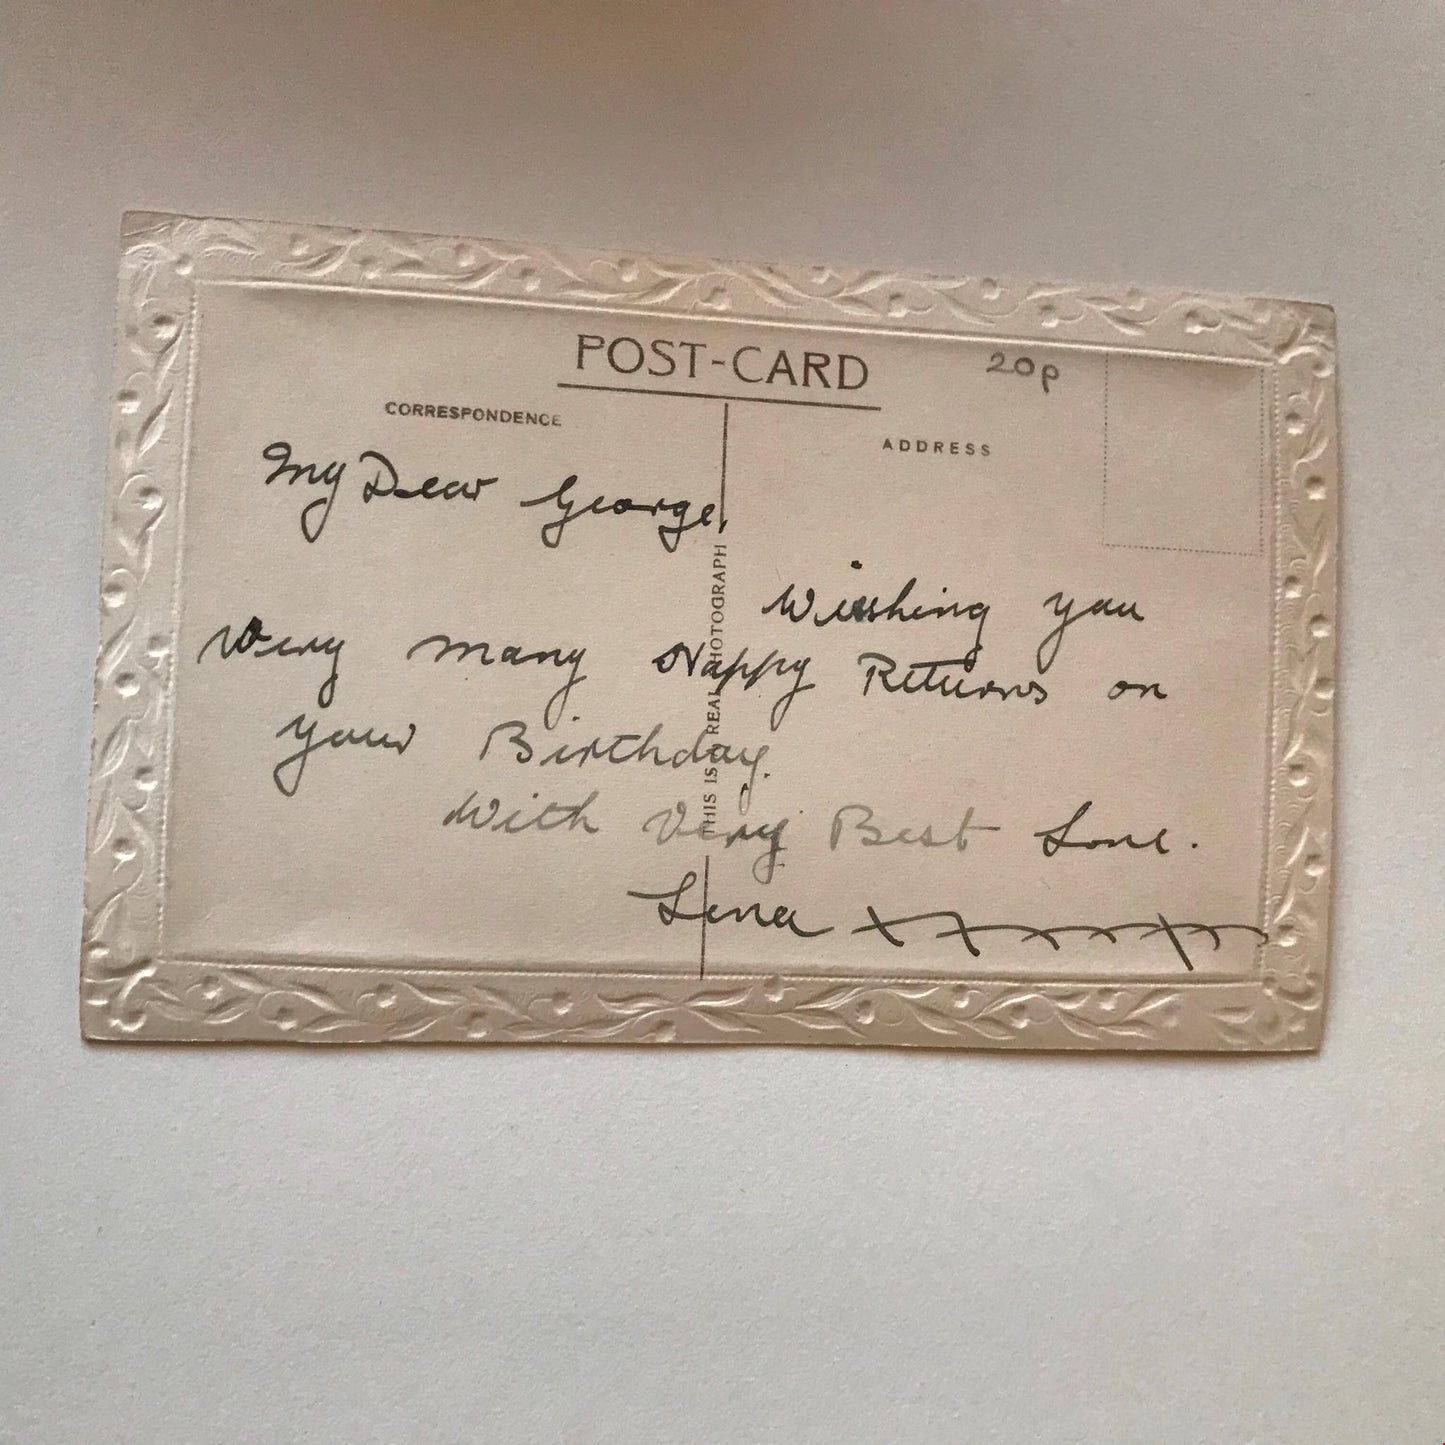 POST-CARD
20p
CORRESPONDENCE
ADDRESS
My Dear George,
Wishing you
Very many Happy Returns on
your Birthday.
With Very Best Love.
Lena xxxxxxx
THIS IS REAL PHOTOGRAPH